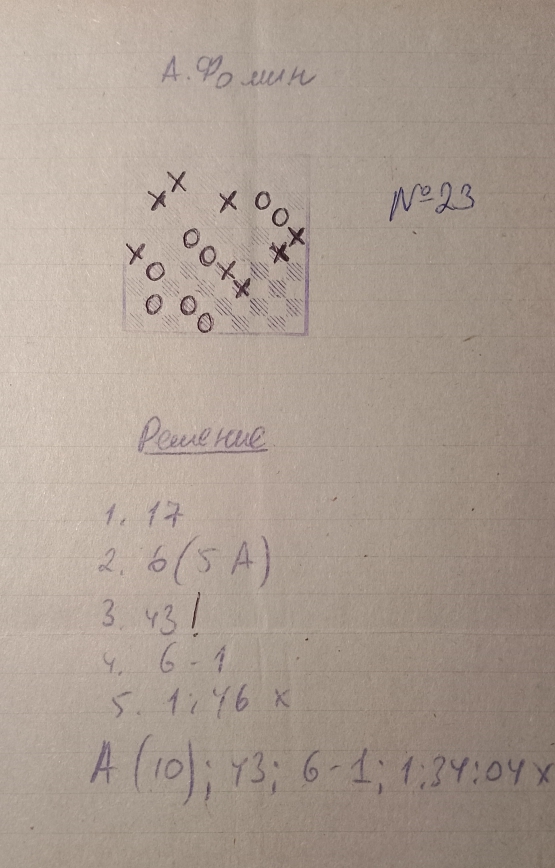 А. Фомин
№23
Решение
1. 17
2. 6 (5 А)
3. 43!
4. 6 - 1
5. 1:46 x
А (10); 43; 6 - 1; 1:34:04 x